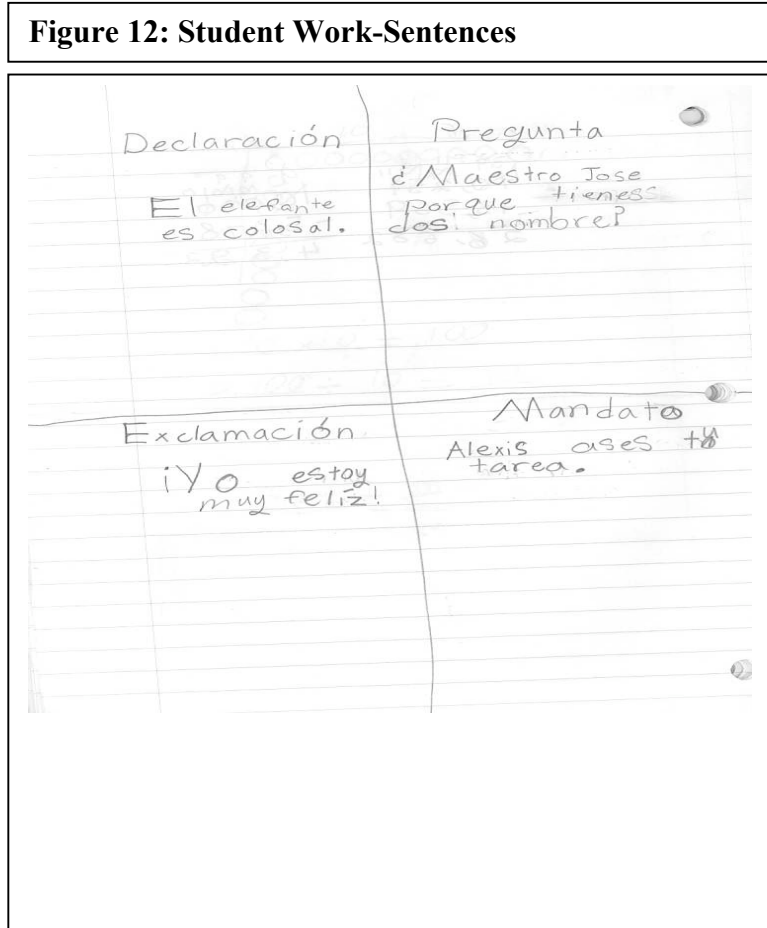 Figure 12: Student Work-Sentences
Declaración
El elefante
es colosal.
Pregunta
¿Maestro Jose
porque tienes
dos nombre?
Exclamación
¡Yo estoy
muy feliz!
Mandato
Alexis ases tu
tarea.